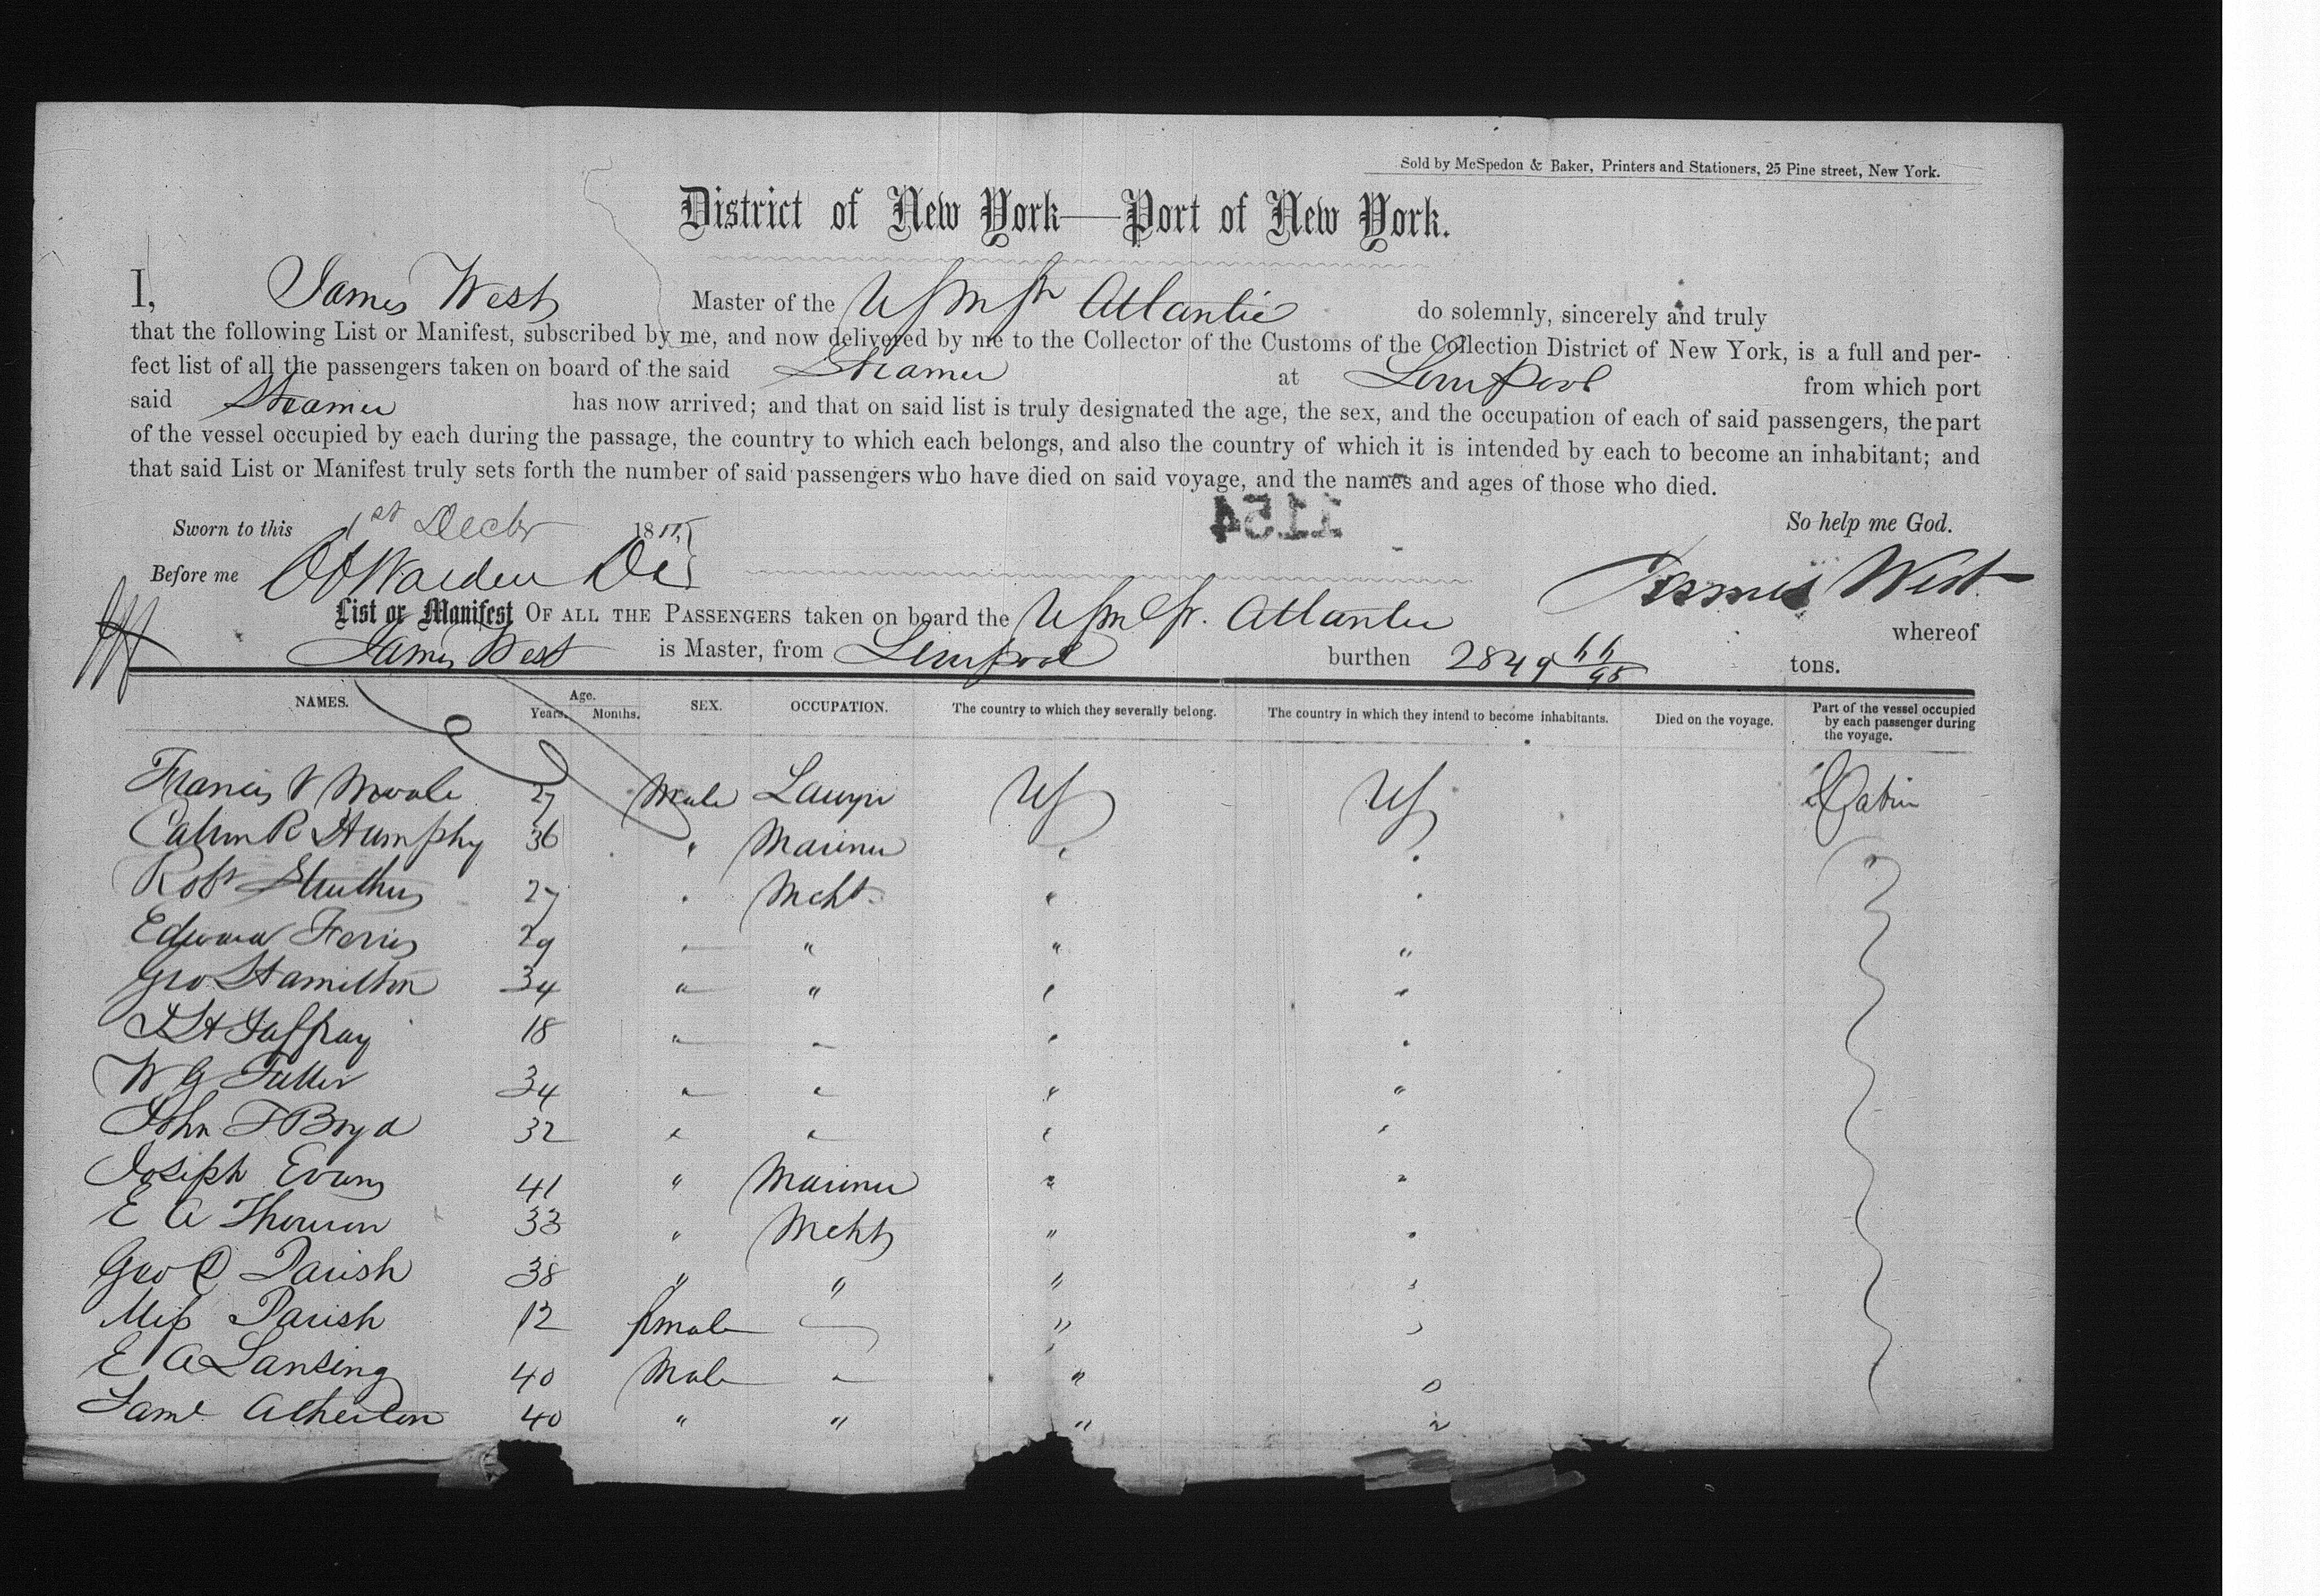 Sold by McSpedon & Baker, Printers and Stationers, 25 Pine street, New York.
District of New York—Port of New York.
I, James West Master of the USMSr Atlantic do solemnly, sincerely and truly
that the following List or Manifest, subscribed by me, and now delivered by me to the Collector of the Customs of the Collection District of New York, is a full and per-
fect list of all the passengers taken on board of the said Steamer at Liverpool from which port
said Steamer has now arrived; and that on said list is truly designated the age, the sex, and the occupation of each of said passengers, the part
of the vessel occupied by each during the passage, the country to which each belongs, and also the country of which it is intended by each to become an inhabitant; and
that said List or Manifest truly sets forth the number of said passengers who have died on said voyage, and the names and ages of those who died.
1154
Sworn to this 1st Decbr 1855 So help me God.
Before me James West
List or Manifest OF ALL THE PASSENGERS taken on board the USMSr. Atlantic whereof
James West is Master, from Liverpool burthen 2849 66/95 tons.
NAMES. Age. Years. Months. SEX. OCCUPATION. The country to which they severally belong. The country in which they intend to become inhabitants. Died on the voyage. Part of the vessel occupied by each passenger during the voyage.
Francis V 27 Male Lawyer US US Cabin
Calvin R Humphy 36 " Mariner " " "
Robt Struthers 27 " Mcht " "
Edward Ferris 29 " " " "
Geo Hamilton 34 " " " "
Jaffray 18 " " " "
W G Fuller 34 " " " "
John F Boyd 32 " " " "
Joseph Evans 41 " Mariner " "
E A 33 " Mcht " "
Geo D Parish 38 " " " "
Miss Parish 12 female " "
E A Lansing 40 Male " " "
Saml Atherton 40 " " " "